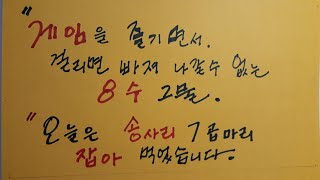 "게임을 즐기면서.
걸리면 빠져 나갈수 없는
8수 그물.
"오늘은 송사리 7곱마리
잡아 먹었습니다.